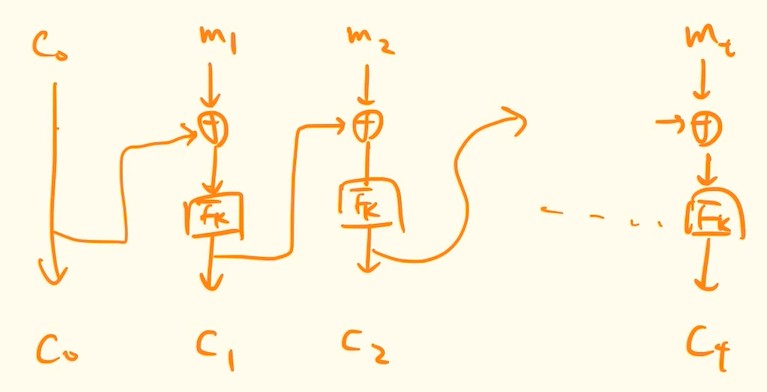 C₀ m₁ m₂ mₜ
F̄ₖ F̄ₖ F̄ₖ
C₀ C₁ C₂ Cₜ